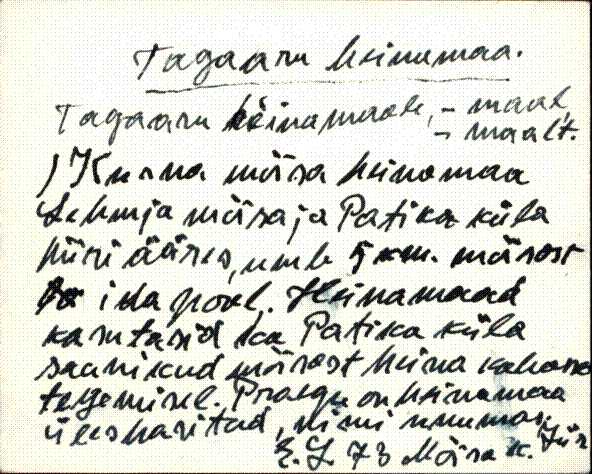 Tagaaru heinamaa.
Tagaaru heinamaale, – maal,
– maalt.
) Kurna mõisa heinamaa
Lehmja mõisa ja Patika küla
piiri ääres, umb. 5 km. mõisast
ida pool. Heinamaad
kasutasid ka Patika küla
saanikud mõisast heina kahasse
tegemisel. Praegu on heinamaa
ülesharitud, nimi unumas.
E. L 73 Mõisa k. Jür